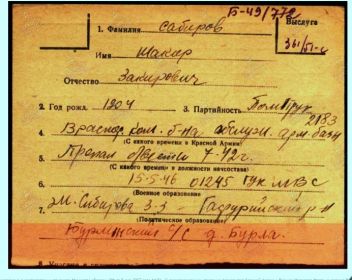 Б-49/772
1. Фамилия сабиров
Выслуга
Имя Шакир
361/51-с
Отчество Закирович
2. Год рожд. 1904 3. Партийность
2183
4 б-на обслуж. арт. базы
(С какого времени в Красной Армии)
5. Пропал 7-42 г.
(С какого времени в должности начсостава)
6. 15-5-46 01245 ГУК МВС
(Военное образование)
7. Ж. Сабирова З-З Гафурийский р-н
(Политическое образование)
Бурлинский с/с д. Бурла.